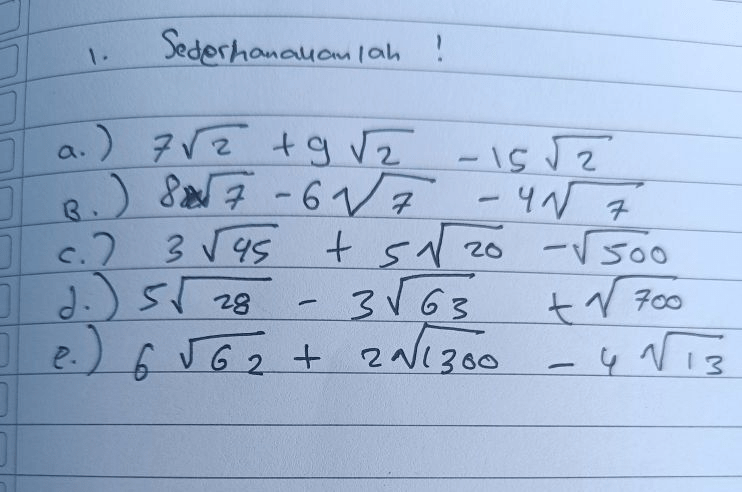 1. Sederhanakanlah !
a.) 7√2 + 9√2 - 15√2
B.) 8√7 - 6√7 - 4√7
c.) 3√45 + 5√20 - √500
d.) 5√28 - 3√63 + √700
e.) 6√62 + 2√1300 - 4√13